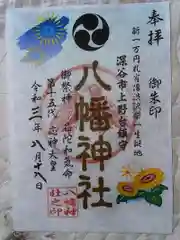 奉拝
御朱印
新一万円札肖像渋沢栄一生誕地
深谷市上野台鎮守
八幡神社
御祭神
誉陀和気命
第十五代 応神天皇
令和三年八月十八日
八幡神社之印